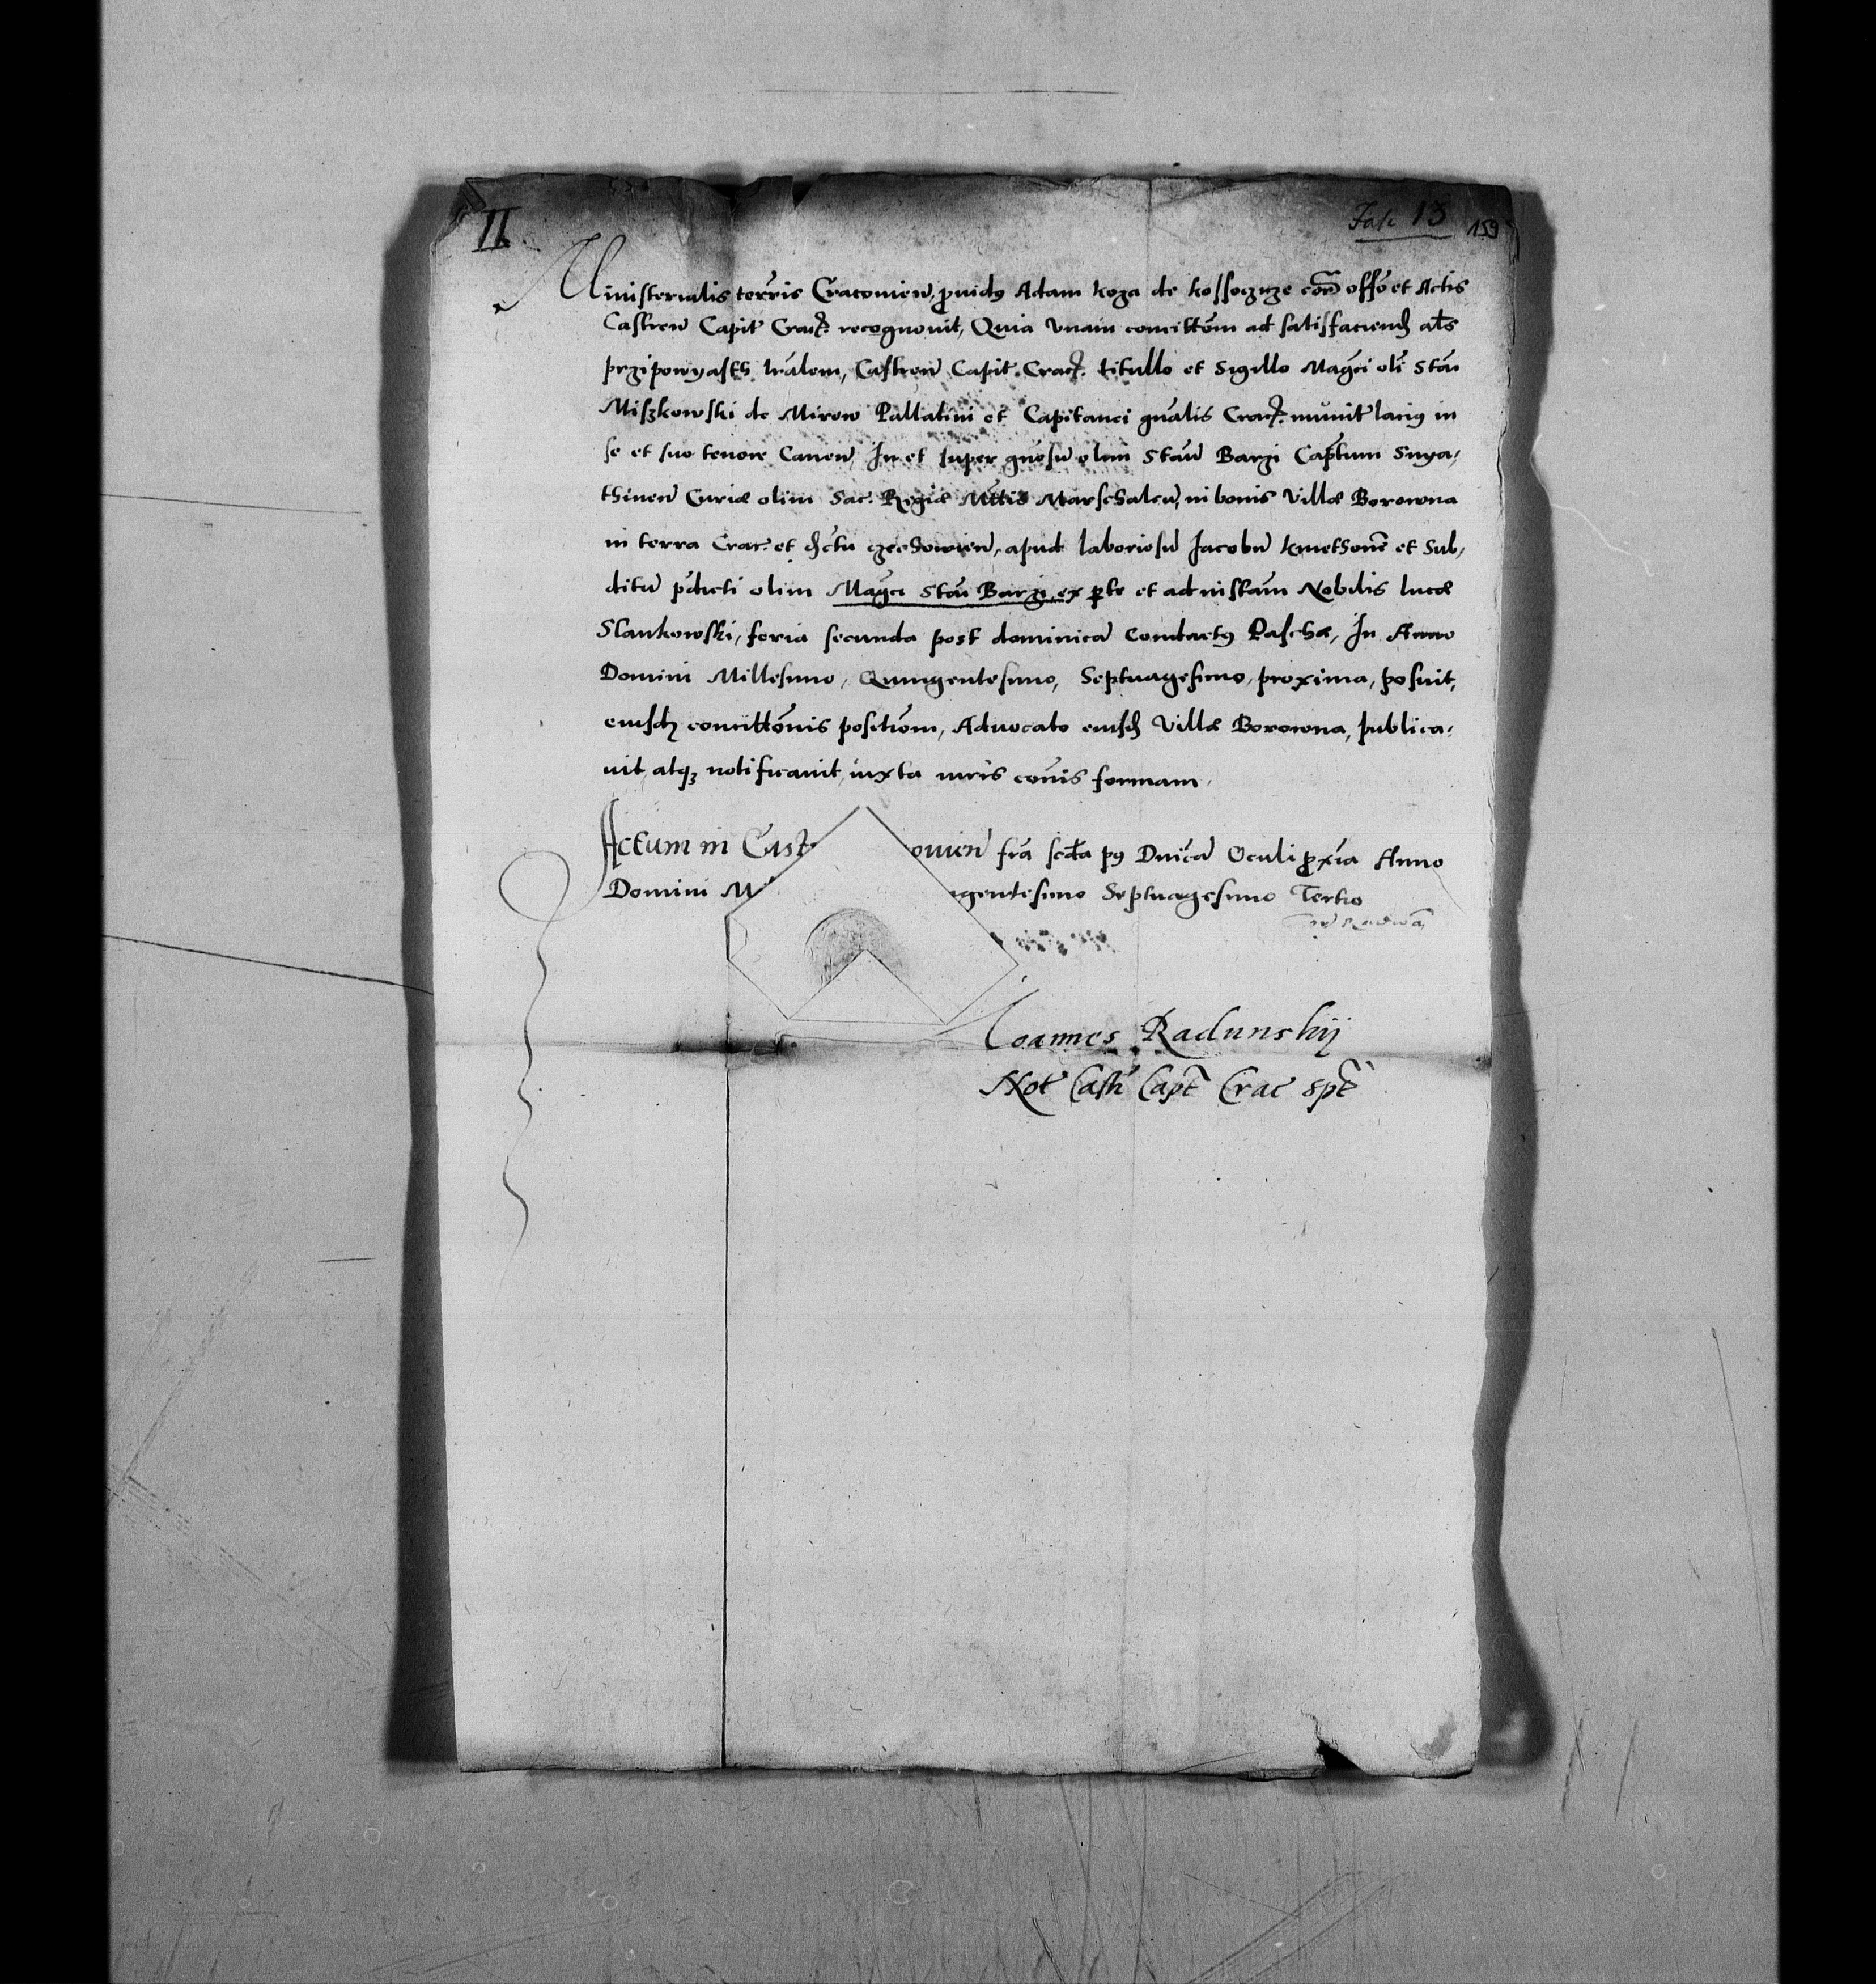 II
Fasc 13 159
Ministerialis terris Cracovien, pvidus Adam Koza de Kossoczyze cora offo et Actis
Castren Capit Crac. recognovit, Quia Unam concittom ad satisfaciend als
przipowyasth lralem, Castren Capit. Crac. titullo et Sigillo Magci oli Stai
Miszkowski de Mirow Pallatini et Capitanei gnalis Crac. munit lacius in
se et suo tenore Canen, In et super gnosu olim Stau Barzi Captum Snya,
thinen Curiæ olim Sac. Regiæ Mttis Marschalcu, in bonis Villæ Borowna
in terra Crac. et dictu , apud laboriosu Jacobu kmethone et Sub,
ditu pdicti olim Magci Stai Barzi, ex pte et ad nistam Nobilis lucæ
Slankowski, feria secunda post dominica Conductus Paschæ, In Anno
Domini Millesimo, Quingentesimo, Septuagesimo, proxima, posuit,
eiusdz concittonis positiom, Advocato eiusd Villæ Borowna, publica,
vit atqz notificavit, iuxta iuris cois formam.
Actum in Cast ovien fria scda ps Dnica Oculi pxia Anno
Domini M ngentesimo Septuagesimo Tertio
Ioannes Radunskij
Not Castr Capt Crac spt